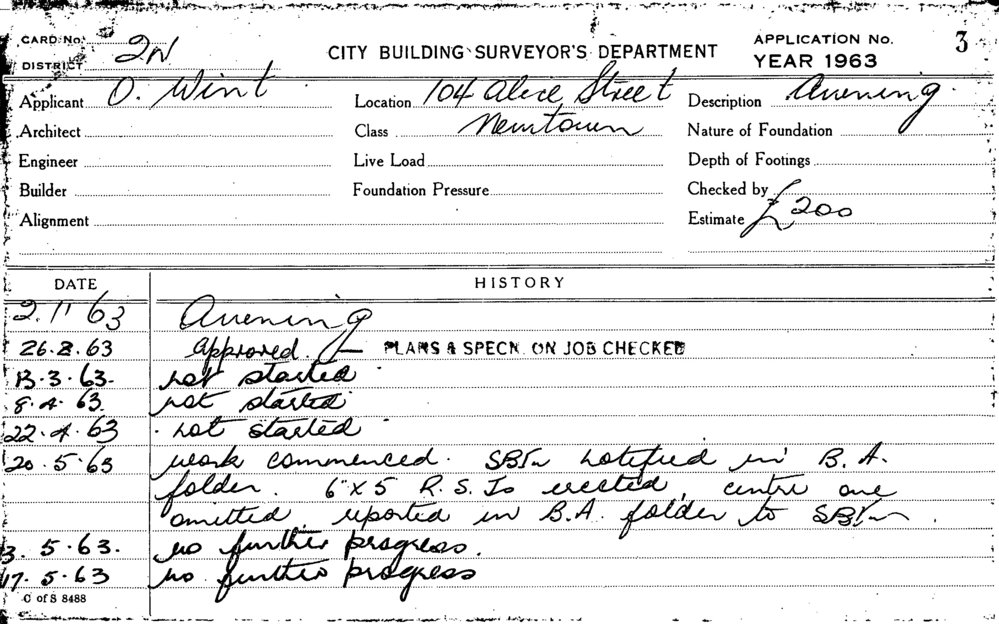 CARD No. 2N
DISTRICT
CITY BUILDING SURVEYOR'S DEPARTMENT
APPLICATION No. 3
YEAR 1963
Applicant O. Wint
Location 104 Alice Street
Description Awening
Architect
Class Newtown
Nature of Foundation
Engineer
Live Load
Depth of Footings
Builder
Foundation Pressure
Checked by
Alignment
Estimate £200
DATE HISTORY
2.11 63 Awening
26.2.63 approved. PLANS & SPECN. ON JOB CHECKED
13.3.63. not started
8.4.63. not started
22.4.63 not started
20.5.63 work commenced. notified in B.A.
folder. 6"x5 R.S.Js erected, centre one
omitted, reported in B.A. folder to
3.5.63. no further progress.
17.5.63 no further progress
C of S 8488